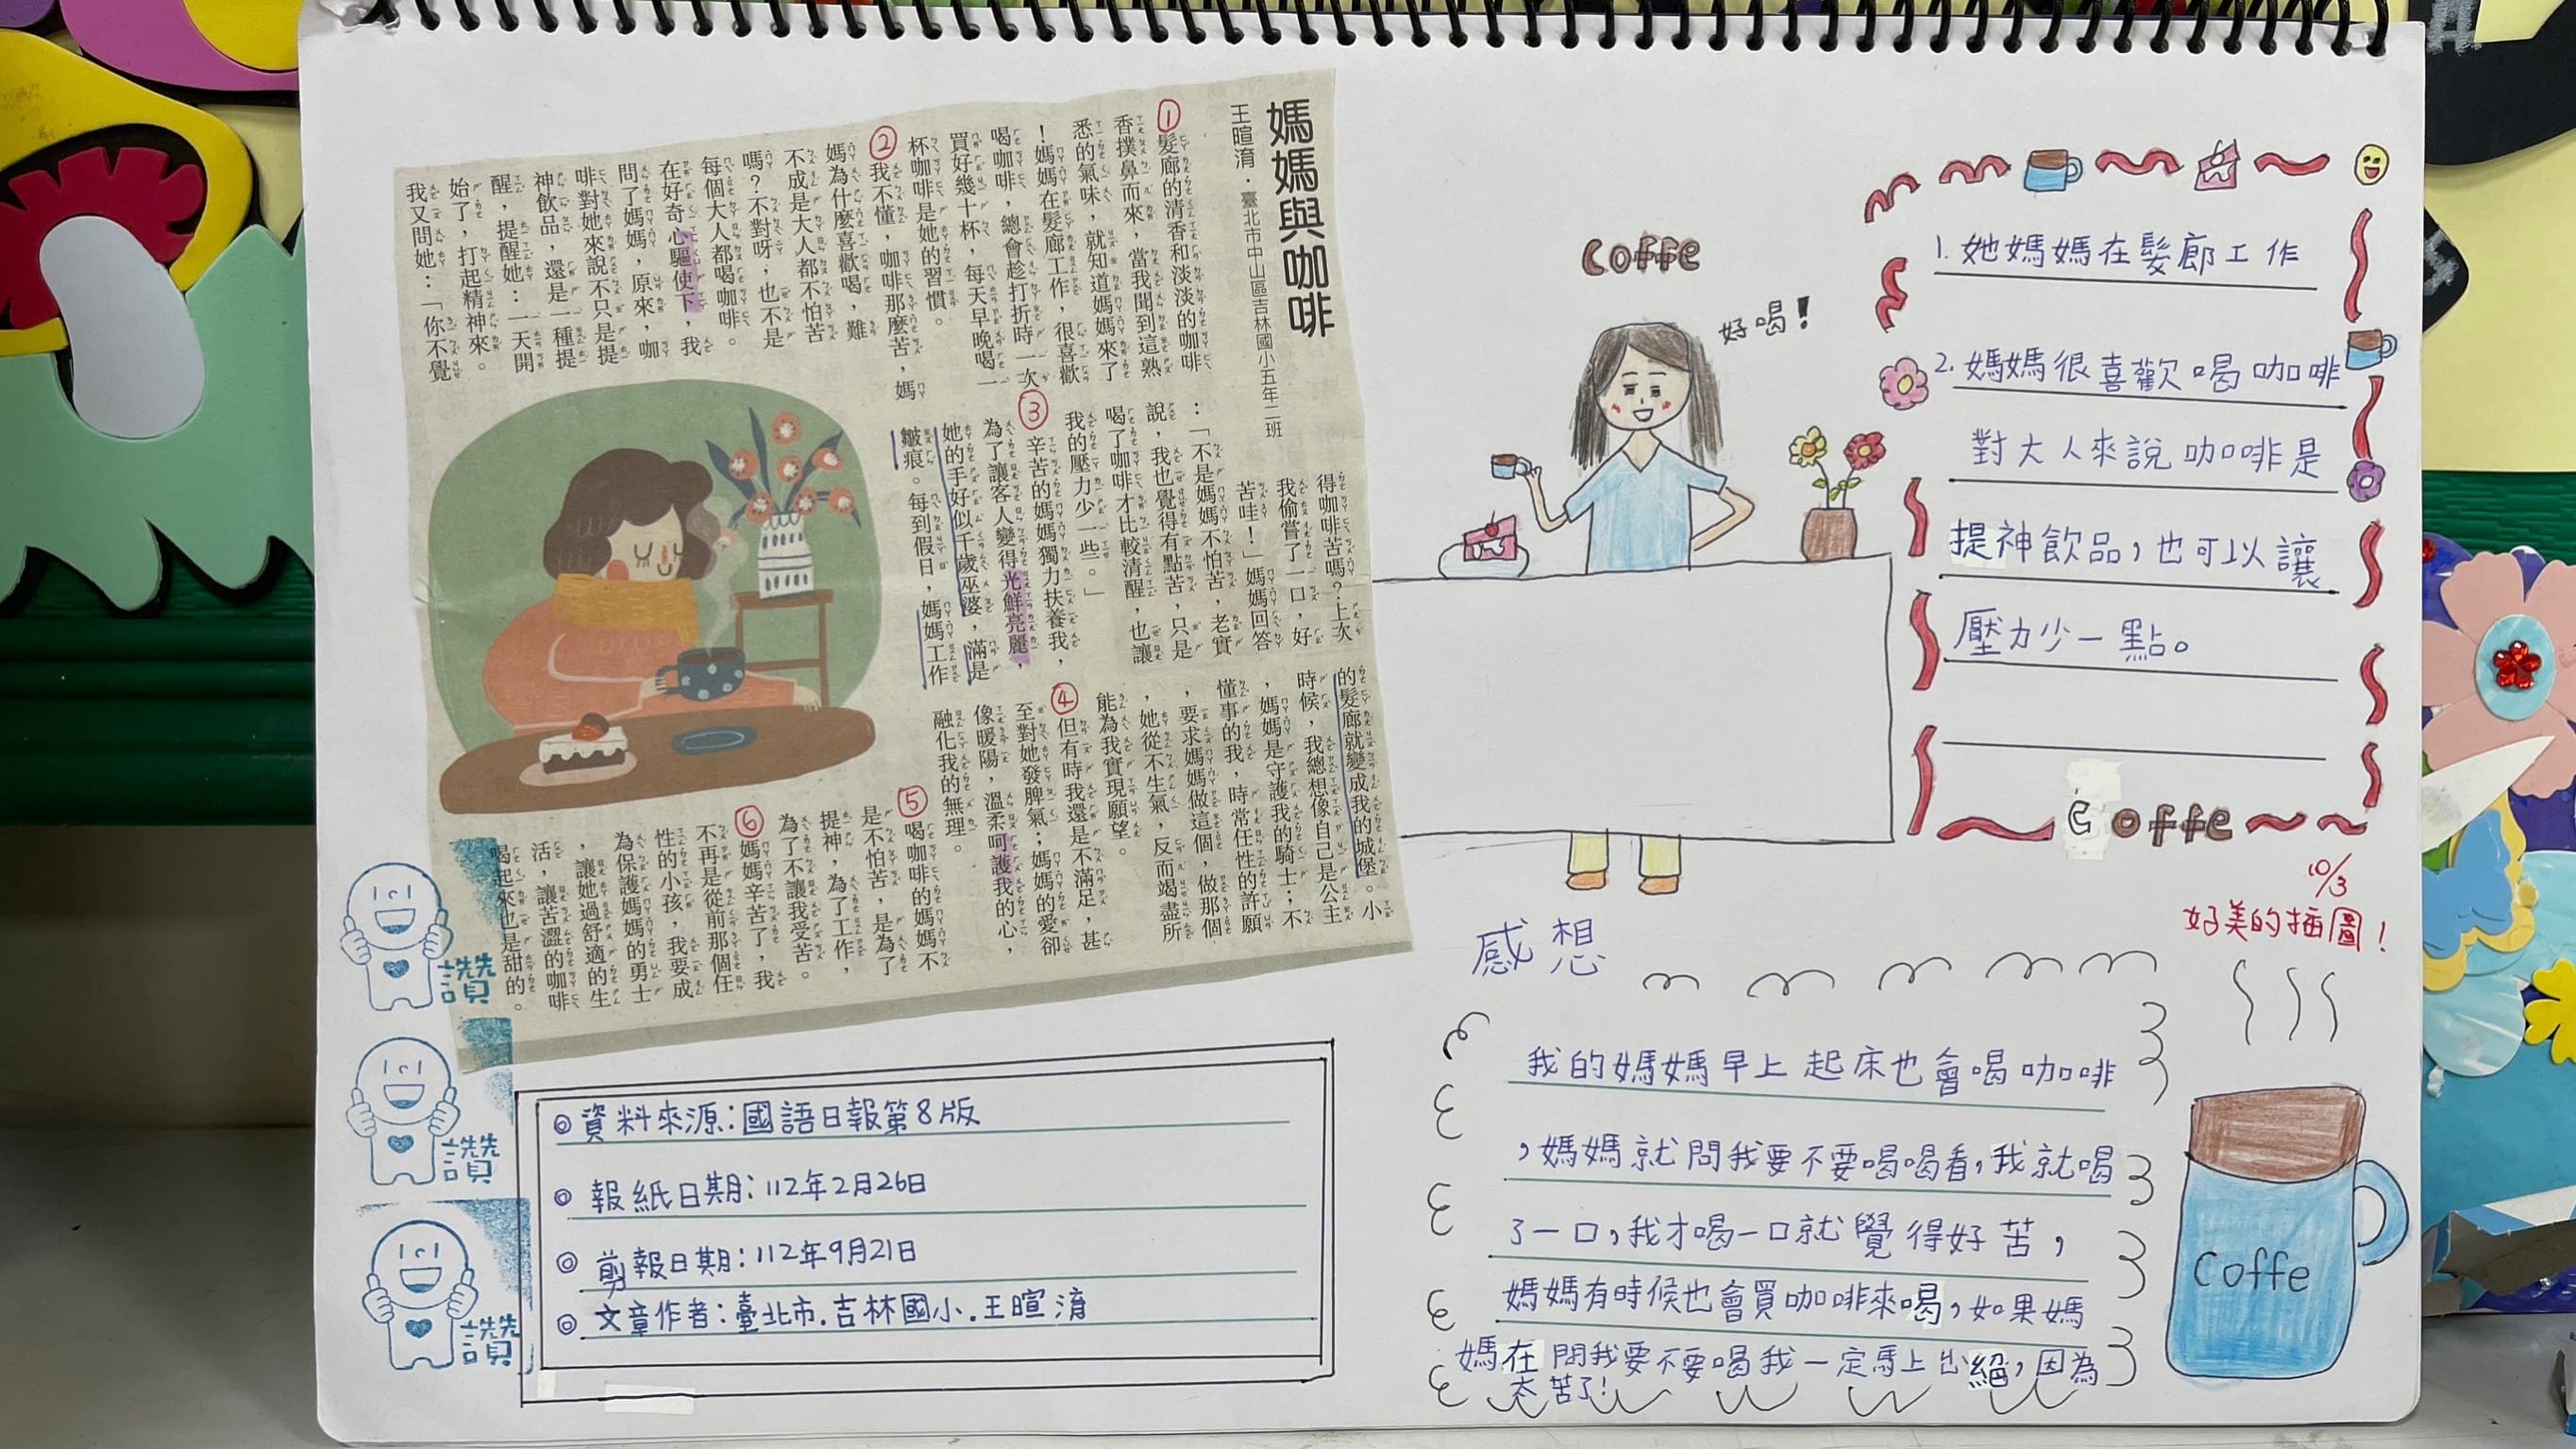 媽媽與咖啡
王暄淯．臺北市中山區吉林國小五年二班
①髮廊的清香和淡淡的咖啡
香撲鼻而來，當我聞到這熟
悉的氣味，就知道媽媽來了
！媽媽在髮廊工作，很喜歡
喝咖啡，總會趁打折時一次
買好幾十杯，每天早晚喝一
杯咖啡是她的習慣。
②我不懂，咖啡那麼苦，媽
媽為什麼喜歡喝，難
不成是大人都不怕苦
嗎？不對呀，也不是
每個大人都喝咖啡。
在好奇心驅使下，我
問了媽媽，原來，咖
啡對她來說不只是提
神飲品，還是一種提
醒，提醒她：一天開
始了，打起精神來。
我又問她：「你不覺
得咖啡苦嗎？上次
我偷嘗了一口，好
苦哇！」媽媽回答
：「不是媽媽不怕苦，老實
說，我也覺得有點苦，只是
喝了咖啡才比較清醒，也讓
我的壓力少一些。」
③辛苦的媽媽獨力扶養我，
為了讓客人變得光鮮亮麗，
她的手好似千歲巫婆，滿是
皺痕。每到假日，媽媽工作
的髮廊就變成我的城堡。小
時候，我總想像自己是公主
，媽媽是守護我的騎士；不
懂事的我，時常任性的許願
，要求媽媽做這個，做那個
，她從不生氣，反而竭盡所
能為我實現願望。
④但有時我還是不滿足，甚
至對她發脾氣；媽媽的愛卻
像暖陽，溫柔呵護我的心，
融化我的無理。
⑤喝咖啡的媽媽不
是不怕苦，是為了
提神，為了工作，
為了不讓我受苦。
⑥媽媽辛苦了，我
不再是從前那個任
性的小孩，我要成
為保護媽媽的勇士
，讓她過舒適的生
活，讓苦澀的咖啡
喝起來也是甜的。
讚
讚
讚
◎資料來源：國語日報第8版
◎報紙日期：112年2月26日
◎剪報日期：112年9月21日
◎文章作者：臺北市．吉林國小．王暄淯
Coffe
好喝！
1. 她媽媽在髮廊工作
2. 媽媽很喜歡喝咖啡
對大人來說咖啡是
提神飲品，也可以讓
壓力少一點。
Coffe
10/3
好美的插圖！
感想
我的媽媽早上起床也會喝咖啡
，媽媽就問我要不要喝喝看，我就喝
了一口，我才喝一口就覺得好苦，
媽媽有時候也會買咖啡來喝，如果媽
媽在問我要不要喝我一定馬上出絕，因為
太苦了！
Coffe